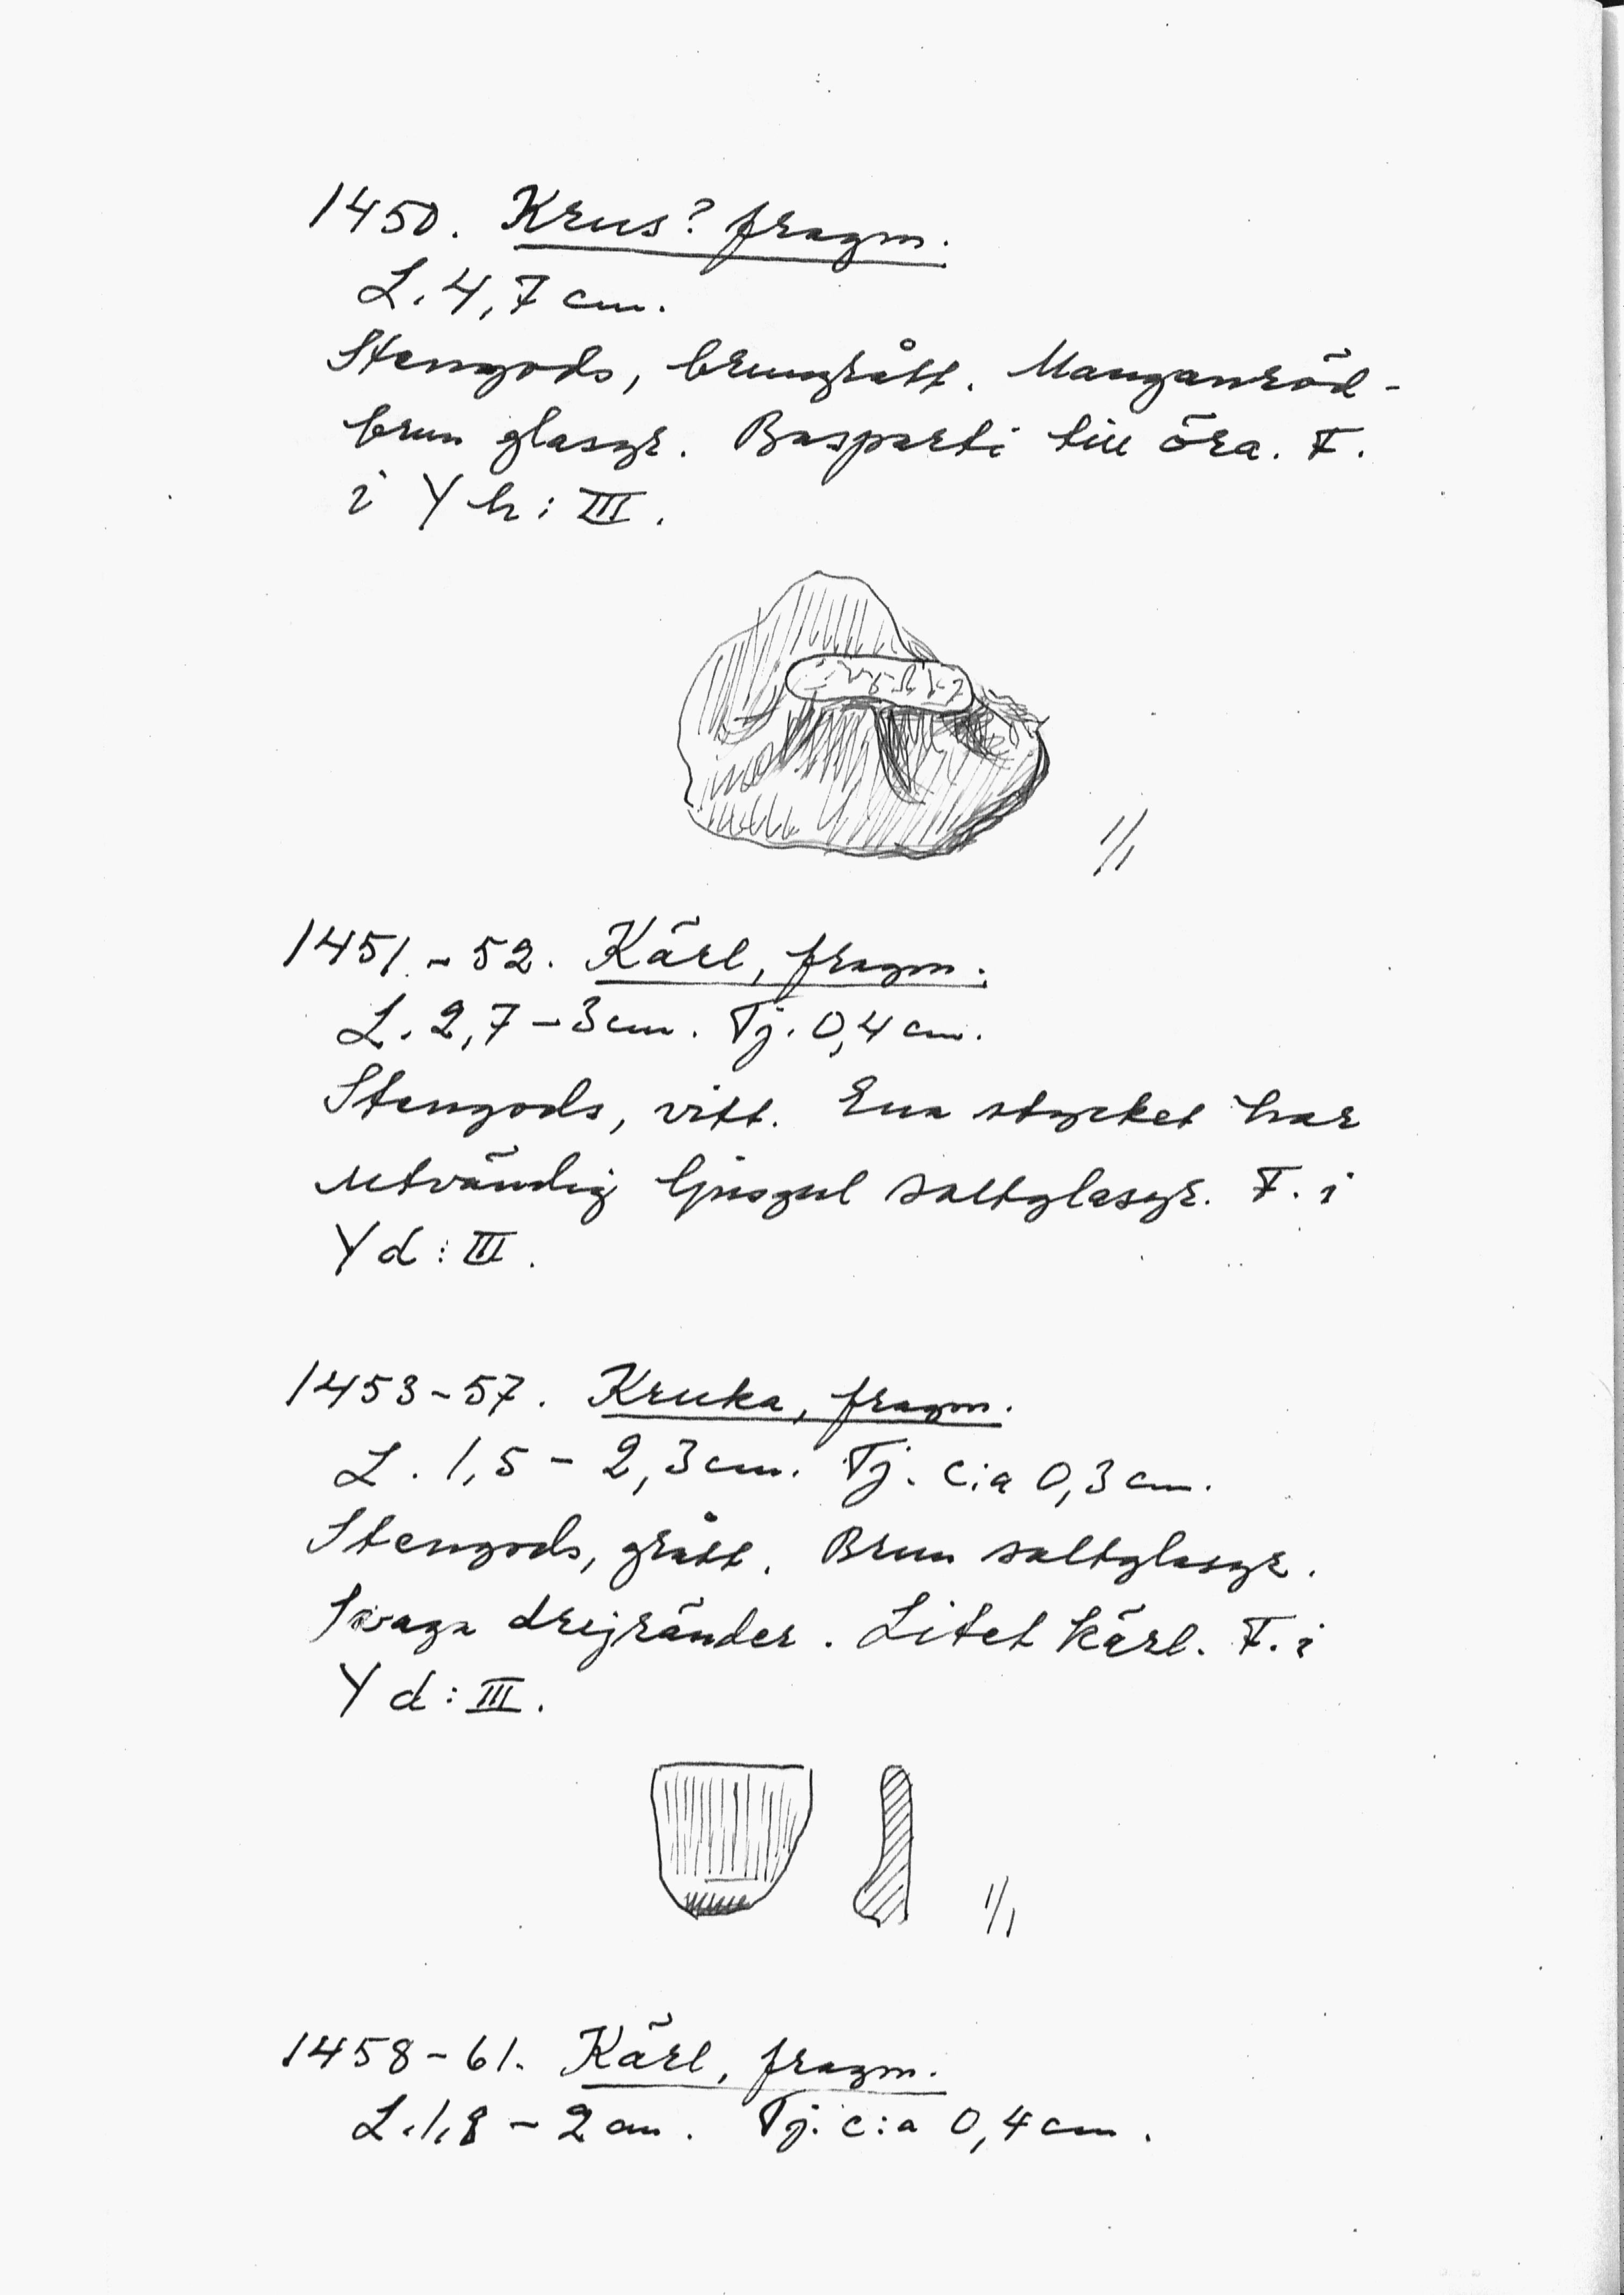 1450. Krus? fragm.
L. 4,7 cm.
Stengods, brungrått. Manganröd-
brun glasyr. Basparti till öra. F.
i Y h : III.
1/1
1451-52. Kärl, fragm.
L. 2,7-3 cm. Tj. 0,4 cm.
Stengods, vitt. Ena stycket har
utvändig ljusgul saltglasyr. F. i
Y d : III.
1453-57. Kruka, fragm.
L. 1,5 - 2,3 cm. Tj. c:a 0,3 cm.
Stengods, grått. Brun saltglasyr.
Svaga drejränder. Litet kärl. F. i
Y d : III.
1/1
1458-61. Kärl, fragm.
L. 1,8 - 2 cm. Tj. c:a 0,4 cm.